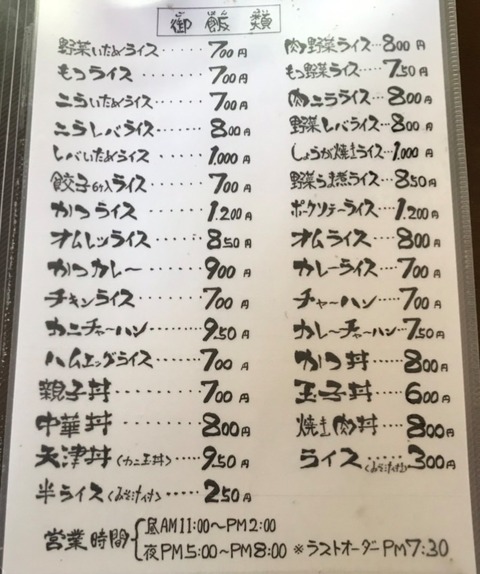 御飯類
野菜いためライス・・・・・700円
もつライス・・・・・・700円
ニラいためライス・・・・・700円
ニラレバライス・・・・・800円
レバいためライス・・・・・1,000円
餃子6ケ入ライス・・・・・700円
かつライス・・・・・・1,200円
オムレツライス・・・・・850円
かつカレー・・・・・・900円
チキンライス・・・・・・700円
カニチャーハン・・・・・950円
ハムエッグライス・・・・・700円
親子丼・・・・・・・700円
中華丼・・・・・・・800円
天津丼(カニ玉丼)・・・・950円
半ライス(みそ汁付)・・・・・250円
肉野菜ライス・・・800円
もつ野菜ライス・・・750円
肉ニラライス・・・800円
野菜レバライス・・・800円
しょうが焼きライス・・1,000円
野菜うま煮ライス・・・850円
ポークソテーライス・・・1,200円
オムライス・・・・800円
カレーライス・・・・700円
チャーハン・・・・・700円
カレーチャーハン・・・・750円
かつ丼・・・・・800円
玉子丼・・・・600円
焼き肉丼・・・・800円
ライス(みそ汁付)・・・300円
営業時間 昼AM11:00〜PM2:00
夜PM5:00〜PM8:00 ※ラストオーダーPM7:30